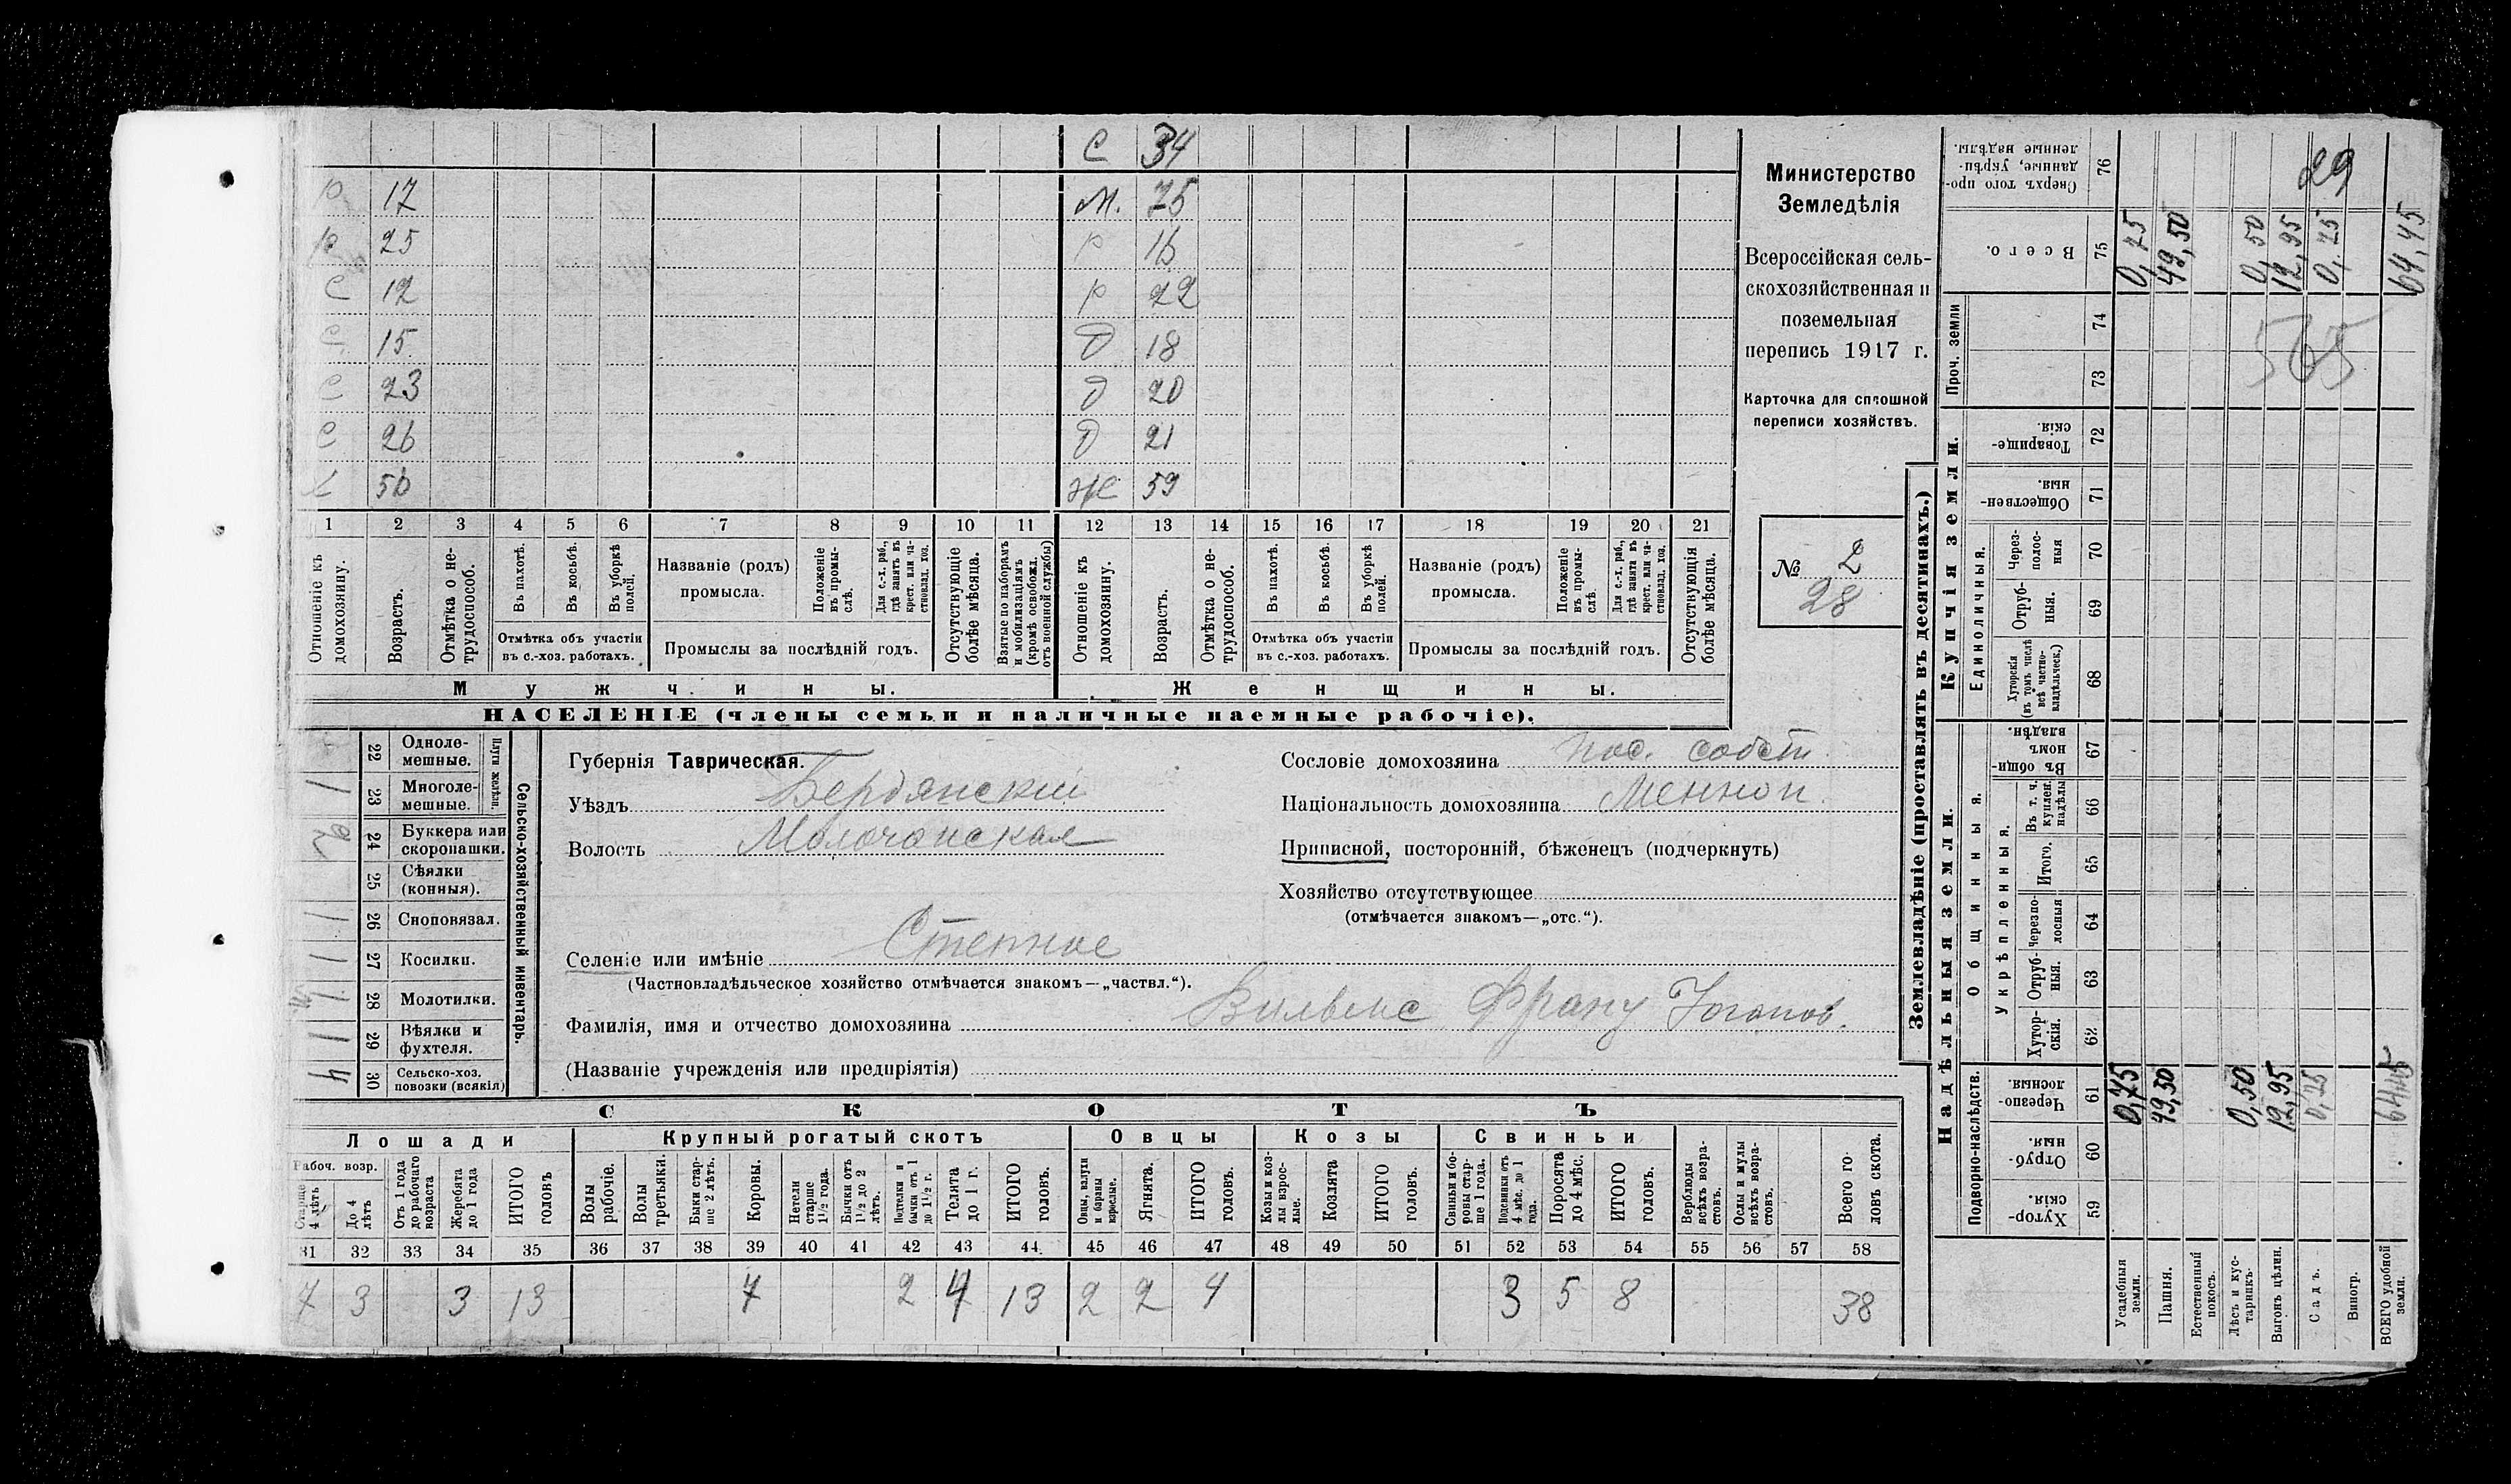 С 34
Р 17 М. 75
Р 25 Р 16
С 12 Р 22
С 15 Д 18
С 23 Д 20
С 26 Д 21
56 Ж 59
1 2 3 4 5 6 7 8 9 10 11 12 13 14 15 16 17 18 19 20 21
Отношеніе къ домохозяину.
Возрастъ.
Отмѣтка о нетрудоспособ.
Въ пахотѣ.
Въ косьбѣ.
Въ уборкѣ полей.
Отмѣтка объ участіи въ с.-хоз. работахъ.
Названіе (родъ) промысла.
Положеніе въ промыслѣ.
Для с.-х. раб., гдѣ занятъ въ крест. или частновлад. хоз.
Промыслы за послѣдній годъ.
Отсутствующіе болѣе мѣсяца.
Взятые по наборамъ и мобилизаціямъ (кромѣ освобожд. отъ военной службы)
Отношеніе къ домохозяину.
Возрастъ.
Отмѣтка о нетрудоспособ.
Въ пахотѣ.
Въ косьбѣ.
Въ уборкѣ полей.
Отмѣтка объ участіи въ с.-хоз. работахъ.
Названіе (родъ) промысла.
Положеніе въ промыслѣ.
Для с.-х. раб., гдѣ занята въ крест. или частновлад. хоз.
Промыслы за послѣдній годъ.
Отсутствующія болѣе мѣсяца.
Мужчины. Женщины.
НАСЕЛЕНІЕ (члены семьи и наличные наемные рабочіе).
Министерство
Земледѣлія
Всероссійская сель-
скохозяйственная и
поземельная
перепись 1917 г.
Карточка для сплошной
переписи хозяйствъ.
№ 2
28
Сельско-хозяйственный инвентарь.
Плуги желѣзн.
22 Одноле-
мешные.
1 23 Многоле-
мешные.
2 24 Буккера или
скоропашки.
25 Сѣялки
(конныя).
1 26 Сноповязал.
1 27 Косилки.
28 Молотилки.
1 29 Вѣялки и
фухтеля.
4 30 Сельско-хоз.
повозки (всякія)
Губернія Таврическая.
Уѣздъ Бердянскій
Волость Молочанская
Селеніе или имѣніе Степное
(Частновладѣльческое хозяйство отмѣчается знакомъ—„частвл.“).
Сословіе домохозяина пос. собст.
Національность домохозяина Меннон.
Приписной, посторонній, бѣженецъ (подчеркнуть)
Хозяйство отсутствующее
(отмѣчается знакомъ—„отс.“).
Фамилія, имя и отчество домохозяина Вильмс Франц Іоганов.
(Названіе учрежденія или предпріятія)
СКОТЪ
Лошади Крупный рогатый скотъ Овцы Козы Свиньи
Рабоч. возр.
Старше 4 лѣтъ
До 4 лѣтъ
Отъ 1 года до рабочаго возраста
Жеребята до 1 года
ИТОГО головъ
Волы рабочіе.
Волы третьяки.
Быки старше 2 лѣтъ.
Коровы.
Нетели старше 1½ года.
Бычки отъ 1½ до 2 лѣтъ.
Подтелки и бычки отъ 1 до 1½ г.
Телята до 1 г.
ИТОГО головъ.
Овцы, валухи и бараны взрослые.
Ягнята.
ИТОГО головъ.
Козы и козлы взрослые.
Козлята
ИТОГО головъ.
Свиньи и боровы старше 1 года.
Подсвинки отъ 4 мѣс. до 1 года.
Поросята до 4 мѣс.
ИТОГО головъ.
Верблюды всѣхъ возрастовъ.
Ослы и мулы всѣхъ возрастовъ.
Всего головъ скота.
31 32 33 34 35 36 37 38 39 40 41 42 43 44 45 46 47 48 49 50 51 52 53 54 55 56 57 58
7 3 3 13 7 2 4 13 2 2 4 3 5 8 38
Землевладѣніе (проставлять въ десятинахъ.)
Надѣльныя земли. Купчія земли. Проч. земли
Подворно-наслѣдств. Общинныя. Единоличныя.
Укрѣпленныя.
Хуторскія 59
Отрубныя. 60
Черезполосныя. 61
Хуторскія. 62
Отрубныя. 63
Черезполосныя 64
Итого. 65
Въ т. ч. куплен. надѣлы 66
Въ общинномъ владѣн. 67
Хуторскія (въ томъ числѣ всѣ частновладѣльческ.) 68
Отрубныя. 69
Черезполосныя 70
Общественныя. 71
Товарищескія. 72
73
74
Всего. 75
Сверхъ того проданные, укрѣпленные надѣлы. 76
Усадебныя земли. 0,75 0,75
Пашня. 49,50 49,50
Естественный покосъ.
Лѣсъ и кустарникъ. 0,50 0,50
Выгонъ цѣлин. 12,95 12,95
Садъ. 0,25 0,25
Виногр.
ВСЕГО удобной земли. 64,45
29
565